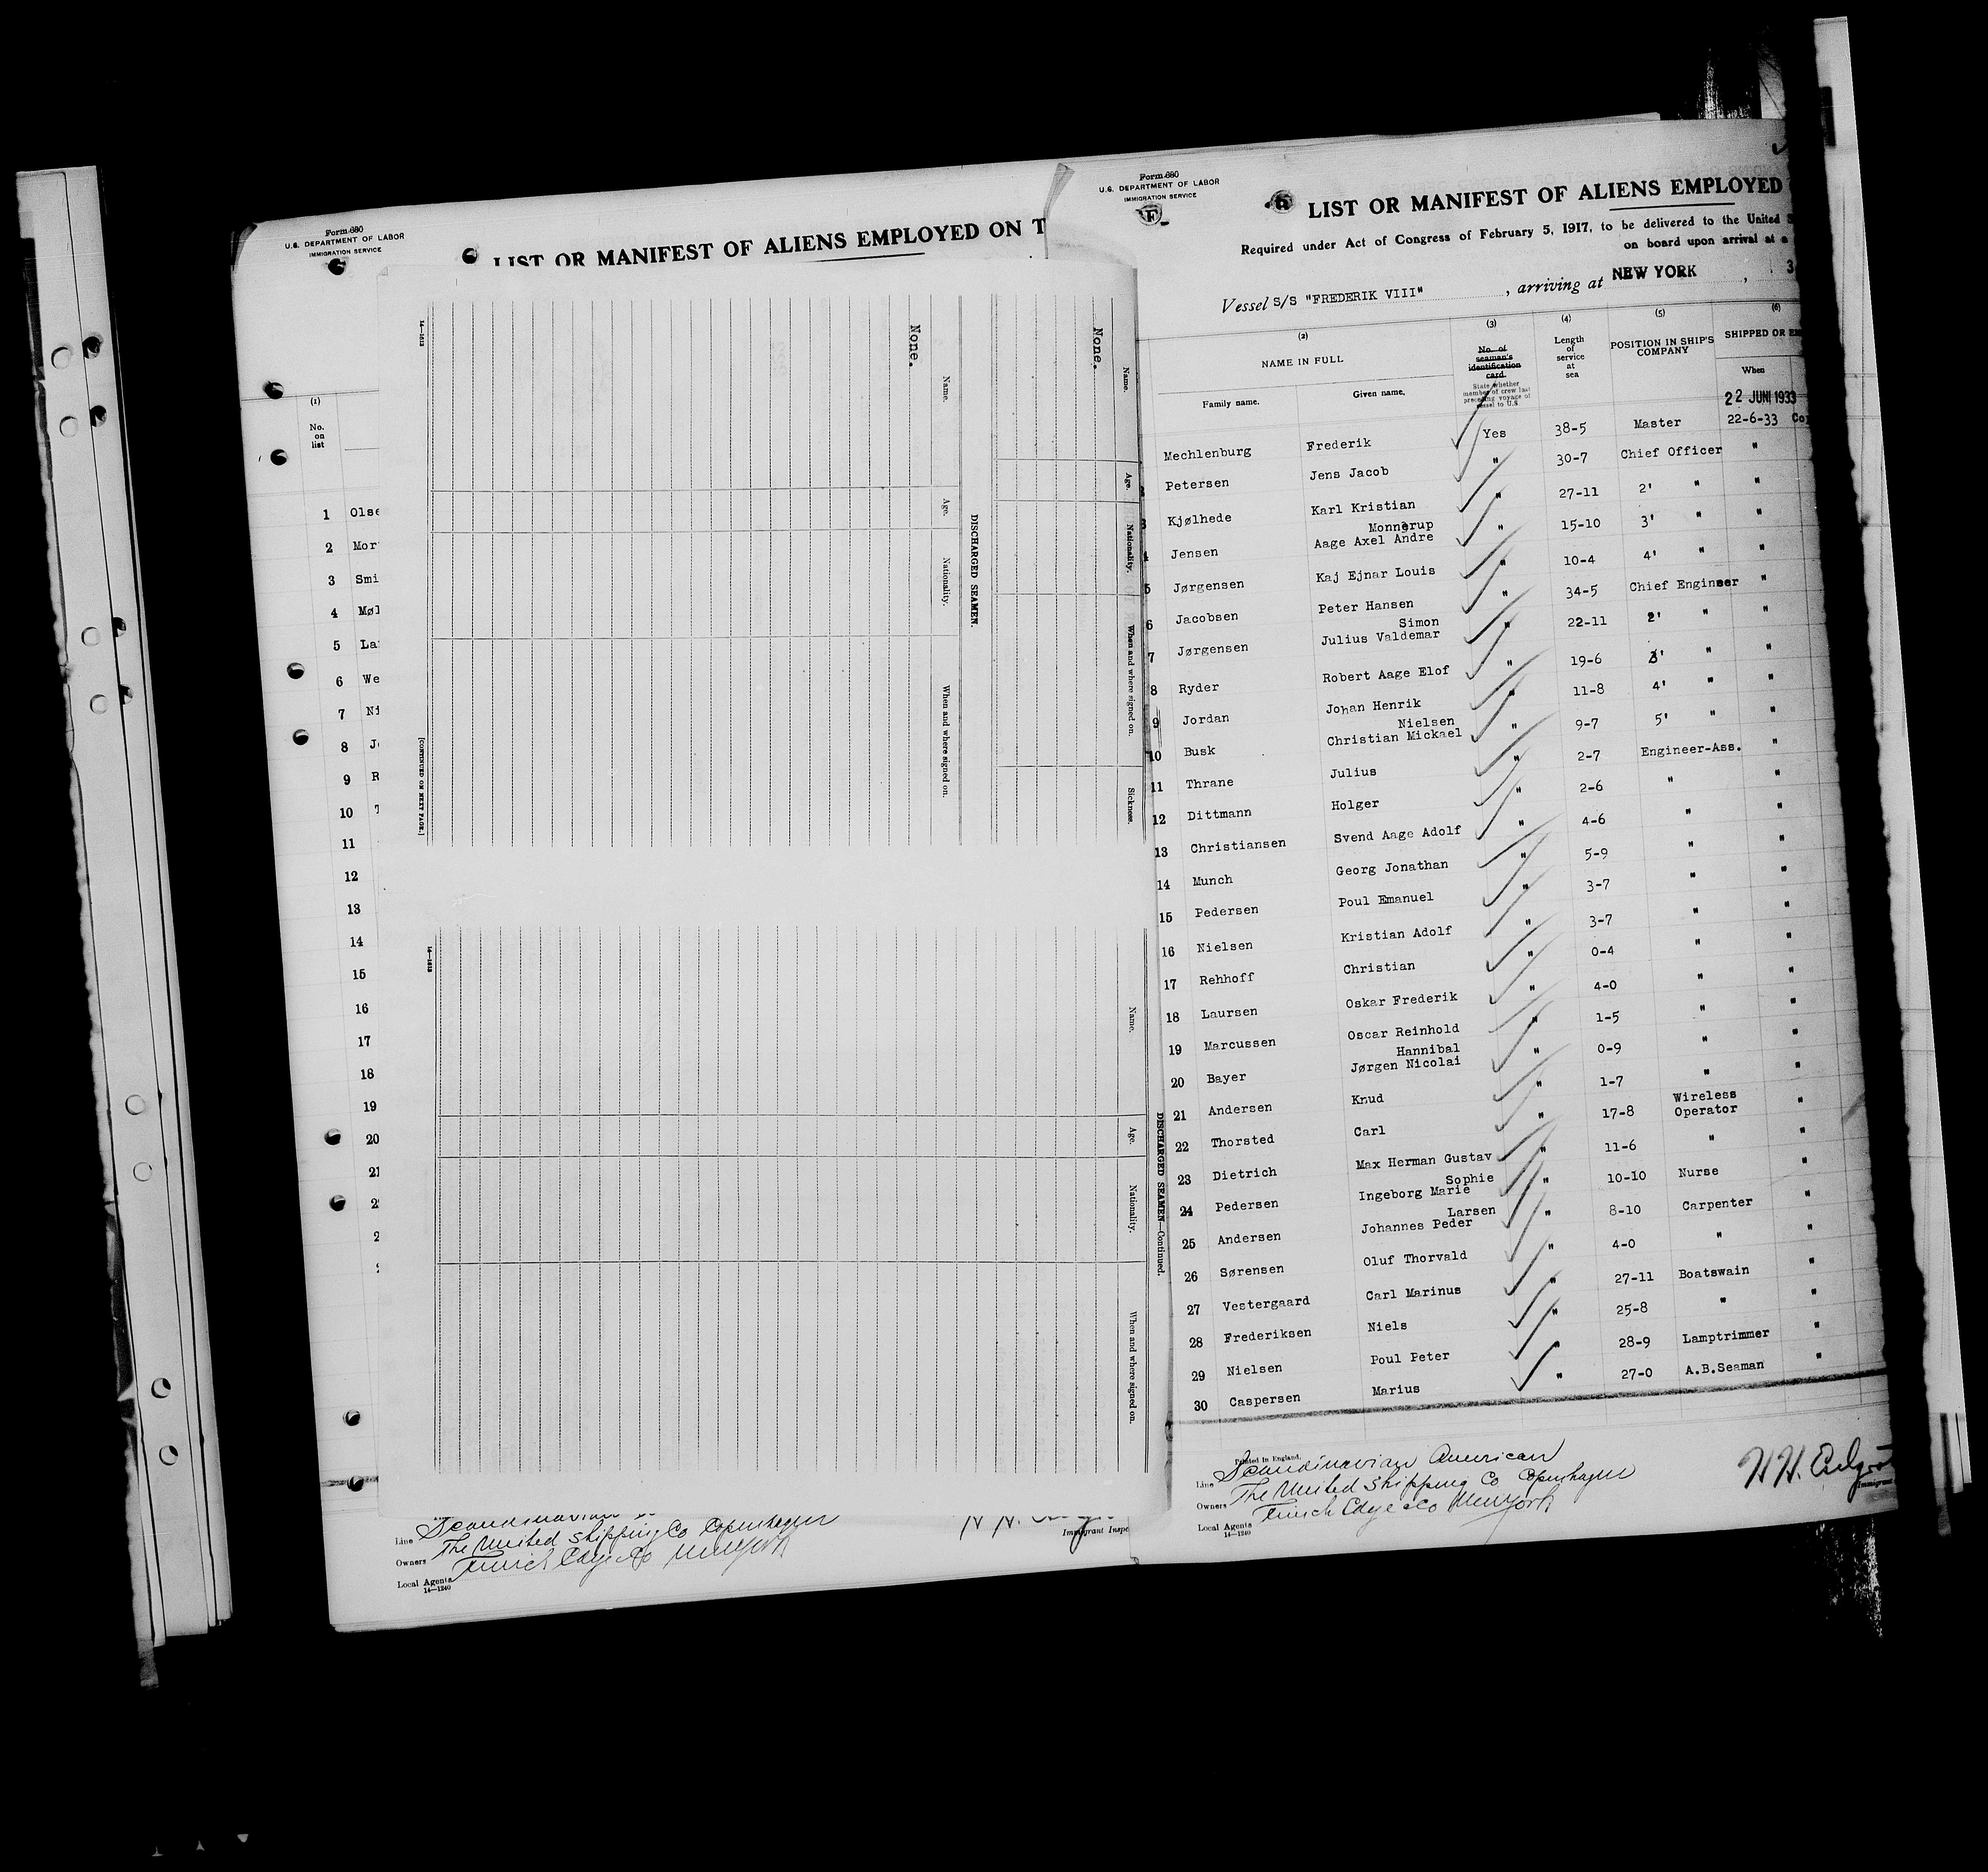 Form 680
U.S. DEPARTMENT OF LABOR
IMMIGRATION SERVICE
LIST OR MANIFEST OF ALIENS EMPLOYED ON T
(1)
No.
on
list
1 Olse
2 Mor
3 Smi
4 Møl
5 La
6 We
7 Ni
8 J
9 R
10
11
12
13
14
15
16
17
18
19
20
21
2
2
Line
Owners The United Shipping Co Copenhagen
Local Agents
14—1240
Immigrant Inspe
14—1613
None.
Name.
Age.
Nationality.
When and where signed on.
[CONTINUED ON NEXT PAGE.]
DISCHARGED SEAMEN.
None.
Name.
Age.
Nationality.
When and where signed on.
Sickness.
14—1613
Name.
Age.
Nationality.
When and where signed on.
DISCHARGED SEAMEN—Continued.
Form 680
U.S. DEPARTMENT OF LABOR
IMMIGRATION SERVICE
F
5 LIST OR MANIFEST OF ALIENS EMPLOYED
Required under Act of Congress of February 5, 1917, to be delivered to the United S
on board upon arrival at a
Vessel S/S "FREDERIK VIII", arriving at NEW YORK, 3
(2) (3) (4) (5) (6)
NAME IN FULL
Family name. Given name.
No. of seaman's identification card.
State whether member of crew last preceding voyage of vessel to U.S
Length of service at sea
POSITION IN SHIP'S COMPANY
SHIPPED OR EN
When
22 JUNI 1933
Mechlenburg Frederik Yes 38-5 Master 22-6-33 Cop
Petersen Jens Jacob " 30-7 Chief Officer "
3 Kjølhede Karl Kristian " 27-11 2' " "
Monnerup
4 Jensen Aage Axel Andre " 15-10 3' " "
5 Jørgensen Kaj Ejnar Louis " 10-4 4' " "
6 Jacobsen Peter Hansen " 34-5 Chief Engineer "
Simon
7 Jørgensen Julius Valdemar " 22-11 2' " "
8 Ryder Robert Aage Elof " 19-6 3' " "
9 Jordan Johan Henrik " 11-8 4' " "
Nielsen
10 Busk Christian Mickael " 9-7 5' " "
11 Thrane Julius " 2-7 Engineer-Ass. "
12 Dittmann Holger " 2-6 " "
13 Christiansen Svend Aage Adolf " 4-6 " "
14 Munch Georg Jonathan " 5-9 " "
15 Pedersen Poul Emanuel " 3-7 " "
16 Nielsen Kristian Adolf " 3-7 " "
17 Rehhoff Christian " 0-4 " "
18 Laursen Oskar Frederik " 4-0 " "
19 Marcussen Oscar Reinhold " 1-5 " "
Hannibal
20 Bayer Jørgen Nicolai " 0-9 " "
21 Andersen Knud " 1-7 " "
22 Thorsted Carl " 17-8 Wireless Operator "
23 Dietrich Max Herman Gustav " 11-6 " "
Sophie
24 Pedersen Ingeborg Marie " 10-10 Nurse "
Larsen
25 Andersen Johannes Peder " 8-10 Carpenter "
26 Sørensen Oluf Thorvald " 4-0 " "
27 Vestergaard Carl Marinus " 27-11 Boatswain "
28 Frederiksen Niels " 25-8 " "
29 Nielsen Poul Peter " 28-9 Lamptrimmer "
30 Caspersen Marius " 27-0 A.B.Seaman "
Printed in England.
Line Scandinavian American
Owners The United Shipping Co Copenhagen
Local Agents Funch Edye & Co New York
14—1240
Immigrant